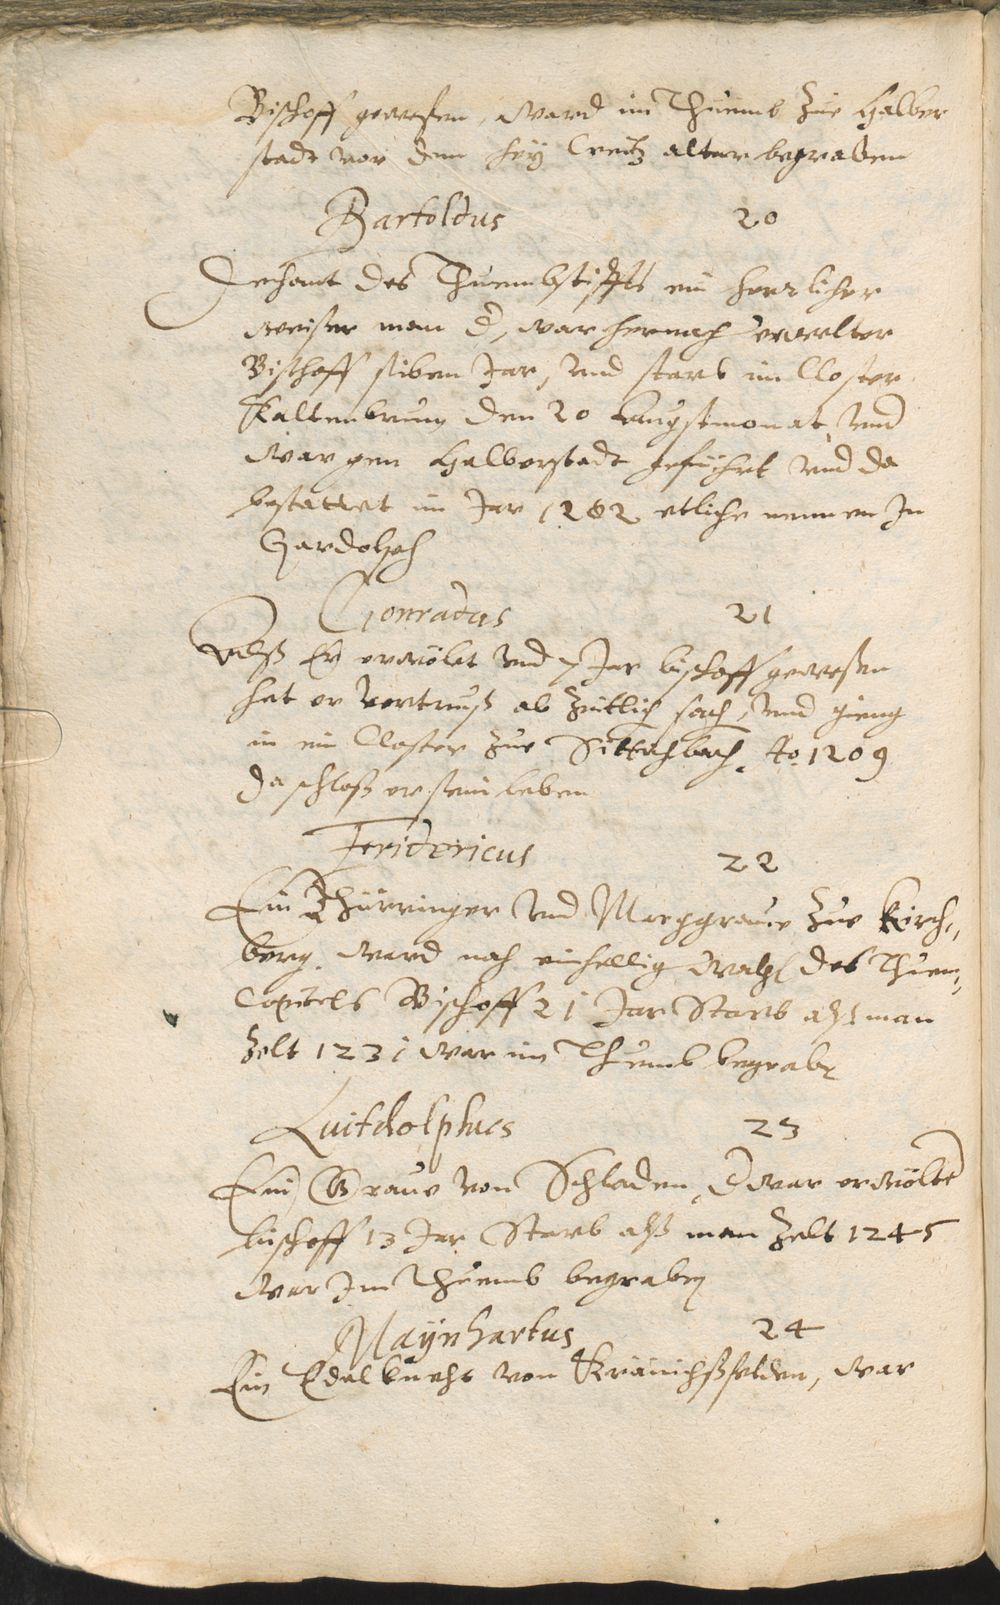 Bischoff gewesen, ward im Thumb zue Halber
stadt vor dem heÿ Creitz altar begraben
Bartoldus 20
Dechant des Thuembstiffts ein herrlicher
weiser man d, war hernach erwelter
Bischoff siben Jar, und starb im Closter
Kaltenbrunn den 20 Augstmonat, und
war gen Halberstadt gefüehrt und da
bestattet im Jar 1202 etliche nennen In
Gardolph
Conradus 21
Alß Er erwölet und 7 Jar bischoff gewesen
hat er vertruß ab Zeitlich sach, und gieng
in ein Closter zue Sittichbach. Ao. 1209
da schloß er sein leben
Fridericus 22
Ein Thürringer und Marggraue zue Kirch„
berg. ward nach einhellig wahl des Thum„
Capitels Bischoff 21 Jar Starb alß man
Zelt 1231 war im Thumb begrabe
Luitdolphus 23
Ein Graue von Schladen, d war erwölte
bischoff 13 Jar Starb alß man Zelt 1245
war Im Thuemb begraben
Maÿnhartus 24
Ein Edelknecht von Kränichsfelden, war